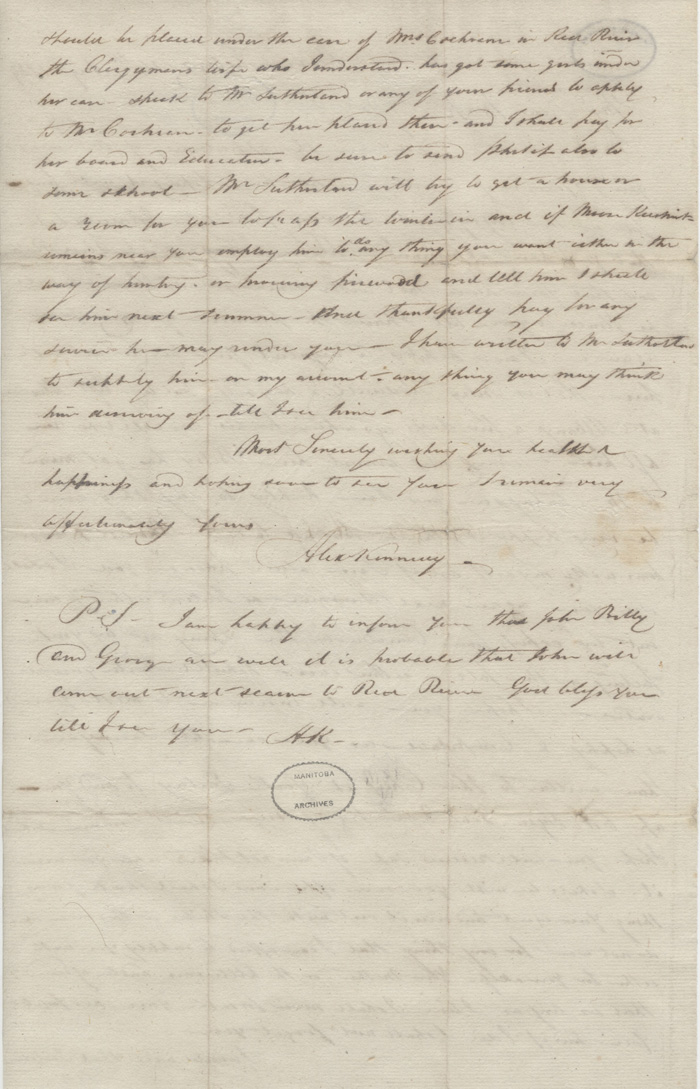 should be placed under the care of Mrs Cochran in Red River
the Clergymans wife who I understand has got some girls under
her care - speak to Mr Sutherland or any of your friends to apply
to Mr Cochran - to get her placed there - and I shall pay for
her board and Education - be sure to send Philip also to
some school - Mr Sutherland will try to get a house or
a room for you to pass the winter in and if
remains near you employ him to do any thing you want either in the
way of hunting - or procuring firewood and tell him I shall
see him next summer - and thankfully pay for any
service he may render you - I have written to Mr Sutherland
to supply him on my account - any thing you may think
him deserving of - till I see him -
Most Sincerely wishing you health &
happiness and hoping soon to see you I remain very
affectionately yours
Alex Kennedy
P.S. - I am happy to inform you that John Billy
and George are well it is probable that John will
come out next season to Red River God bless you
till I see you - AK -
MANITOBA
ARCHIVES